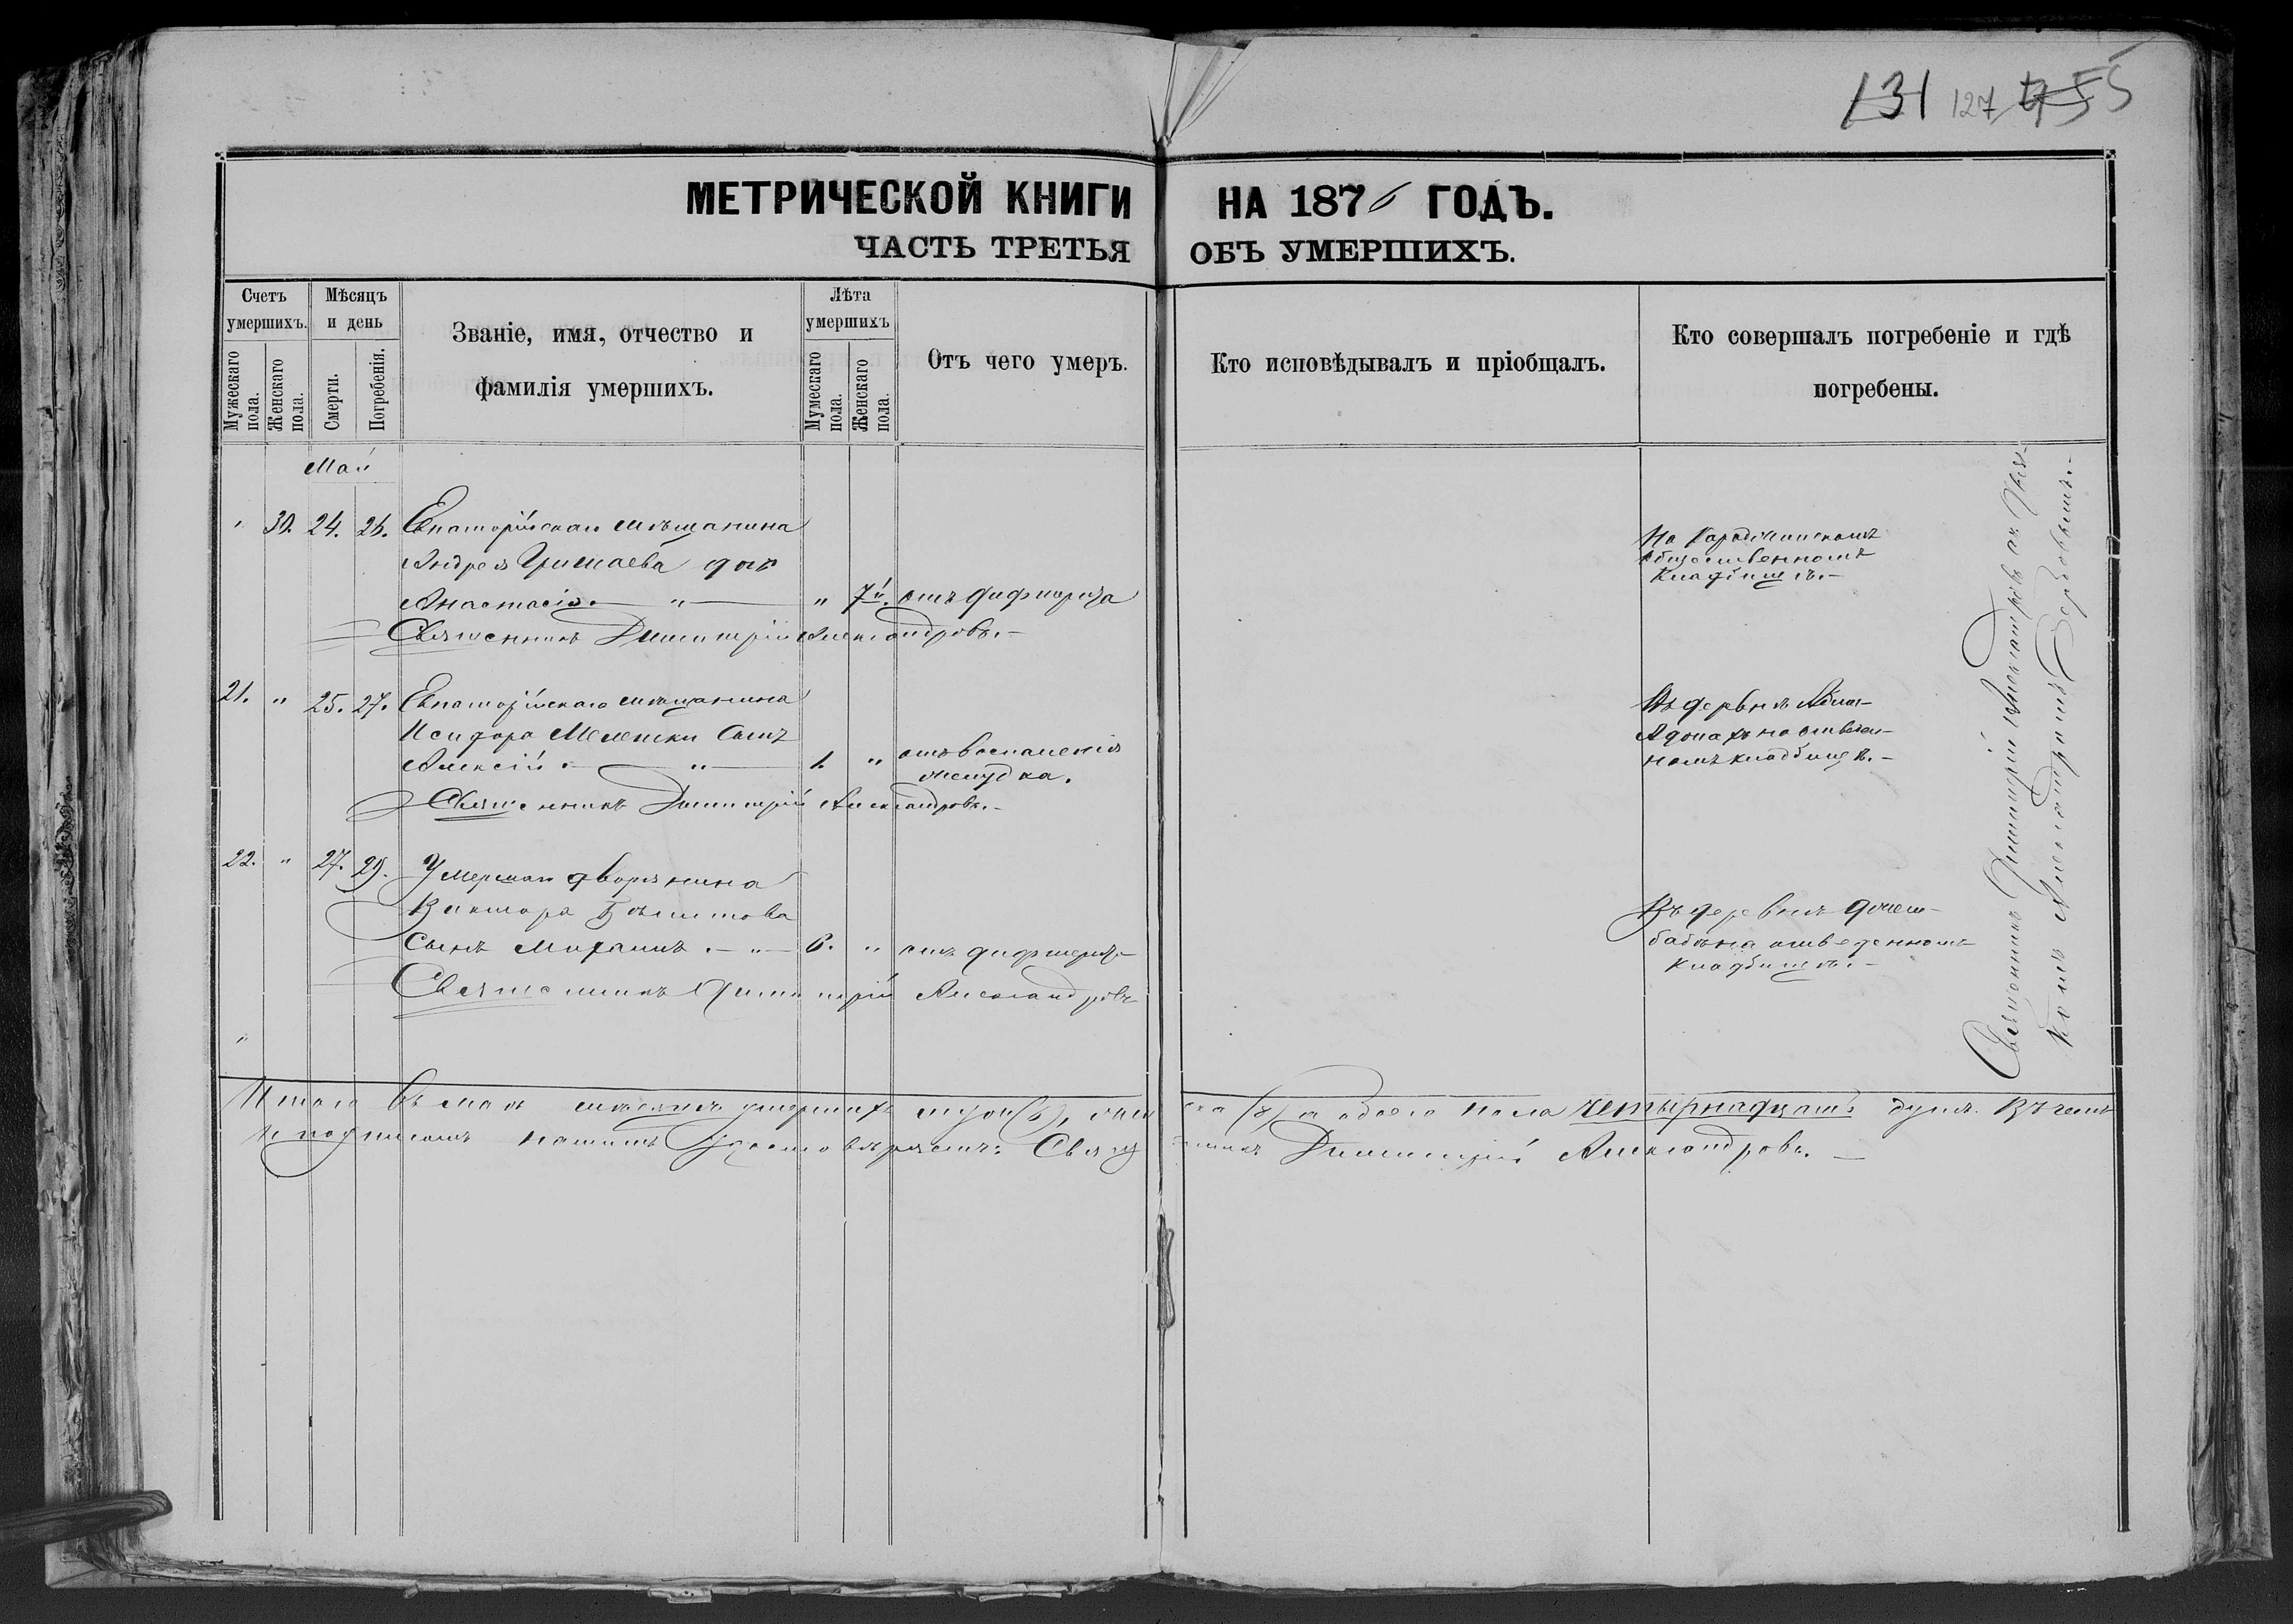 131 127 55
МЕТРИЧЕСКОЙ КНИГИ НА 1876 ГОДЪ.
ЧАСТЬ ТРЕТЬЯ ОБЪ УМЕРШИХЪ.
Счетъ умершихъ.
Мужескаго пола.
Женскаго пола.
Мѣсяцъ и день
Смерти.
Погребенія.
Званіе, имя, отчество и
фамилія умершихъ.
Лѣта умершихъ
Мужескаго пола.
Женскаго пола.
Отъ чего умеръ.
Кто исповѣдывалъ и пріобщалъ.
Кто совершалъ погребеніе и гдѣ
погребены.
Май
" 30. 24. 26. Евпаторійскаго мѣщанина
Андрея Гришаева дочь
Анастасія. — " — " 7. отъ дифтерита
Священникъ Димитрій Александровъ. —
На
общественномъ
кладбищѣ. —
21. " 25. 27. Евпаторійскаго мѣщанина
Исидора Мелешки сынъ
Алексій. — " — 1. " отъ воспаленія
желудка.
Священникъ Димитрій Александровъ. —
Въ деревнѣ
на отведен-
номъ кладбищѣ. —
22. " 27. 29. Умершаго дворянина
Виктора
сынъ Михаилъ. — " — 6. " отъ дифтерита
Священникъ Димитрій Александровъ
Въ деревнѣ
на отведенномъ
кладбищѣ. —
Священникъ Димитрій Александровъ
Итого въ маѣ мѣсяцѣ умершихъ муж (6), женска (8) а обоего пола четырнадцать душъ. Въ чемъ
и подписомъ нашимъ удостовѣряемъ: Священникъ Димитрій Александровъ. —